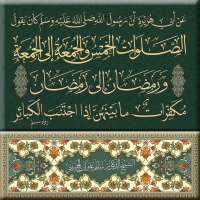 عَنْ أَبِي هُرَيْرَةَ أَنَّ رَسُولَ اللَّهِ صَلَّى اللَّهُ عَلَيْهِ وَسَلَّمَ كَانَ يَقُولُ
الصَّلَوَاتُ الْخَمْسُ وَالْجُمُعَةُ إِلَى الْجُمُعَةِ
وَرَمَضَانُ إِلَى رَمَضَانَ
مُكَفِّرَاتٌ مَا بَيْنَهُنَّ إِذَا اجْتَنَبَ الْكَبَائِرَ